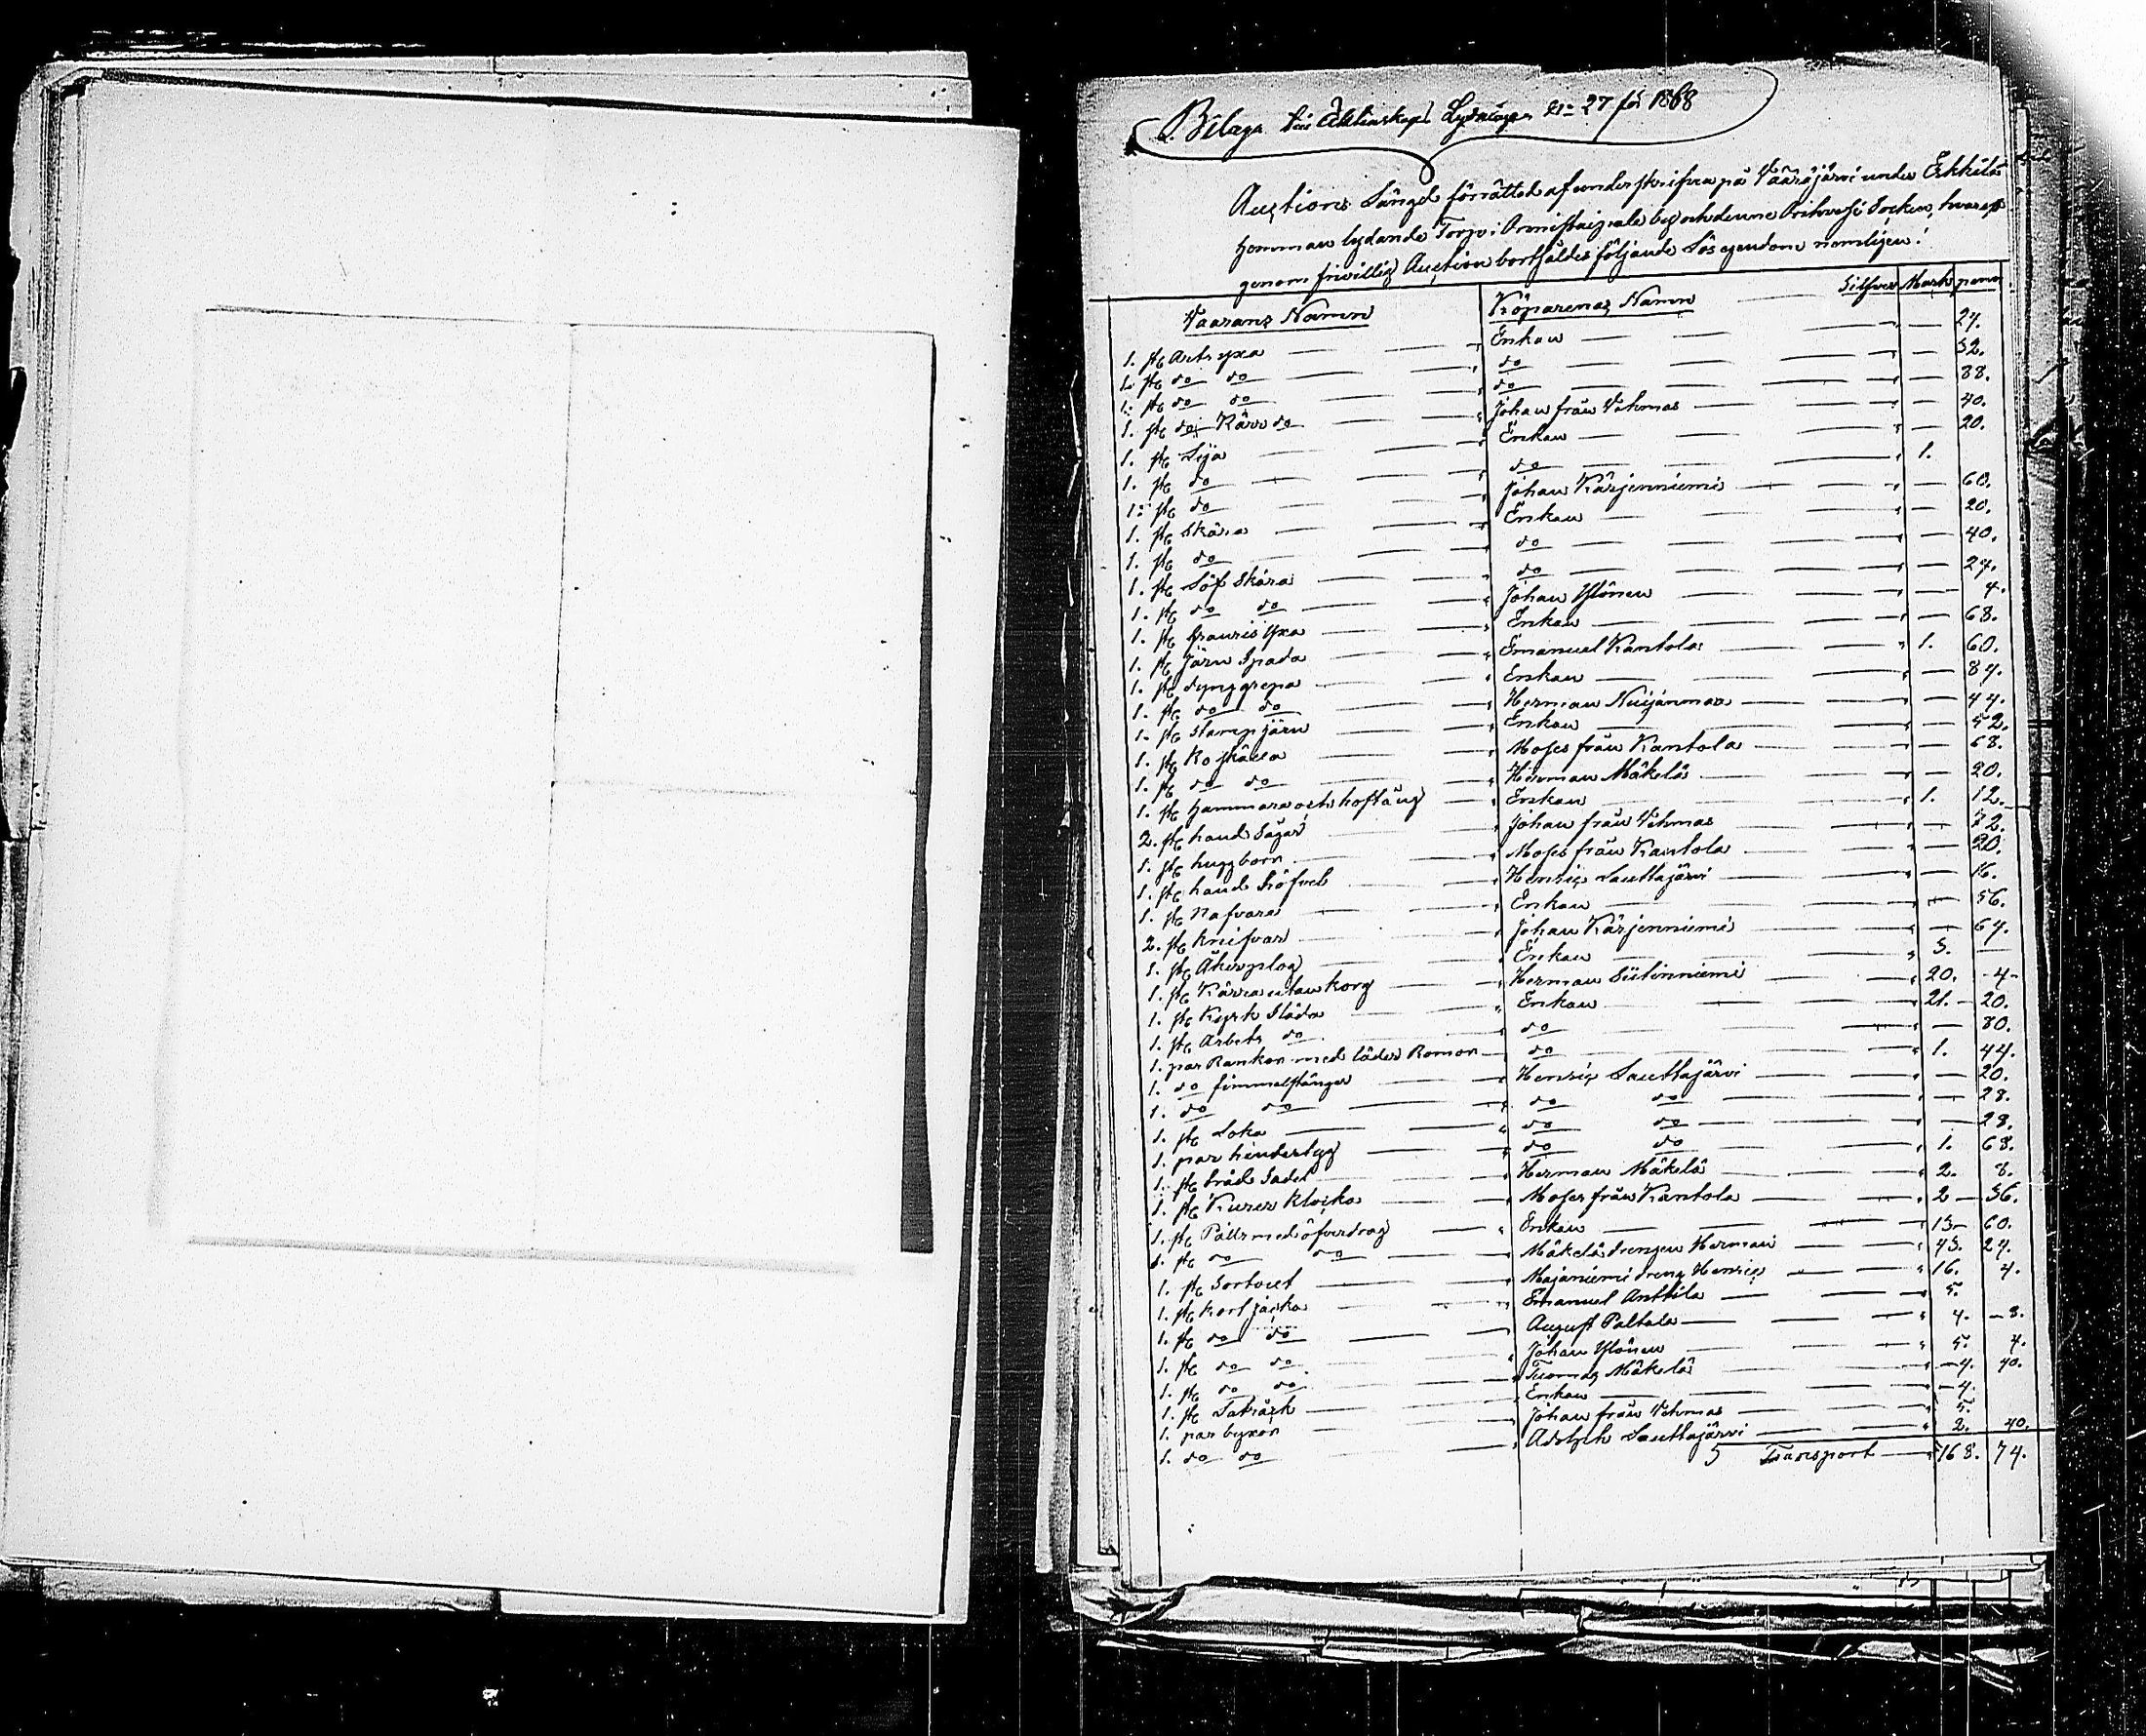 Bilaga till Lydningen No 27 för 1868
Auctions Längd förrättad af underskrifven på Vääräjärvi under Eskkilä
hemman lydande Torp i by och denne Orihvesi Socken, hvarest
genom frivillig Auction bortsåldes följande Lös egendom nemligen:
Vaarans Namn Köparenas Namn Silfver Mark penni
1. st Arbets yxa — Enkan — — 24.
1. st do do — do — — 52.
1. st do do — do — — 88.
1. st do Kärr do — Johan från Vehmas — — 40.
1. st Lija — Enkan — — 20.
1. st do — do — 1.
1. st do — Johan Kärjenniemi — — 60.
1. st Skära — Enkan — — 20.
1. st do — do — — 40.
1. st Löf Skära — do — — 24.
1. st do do — Johan Ylönen — — 4.
1. st yxa — Enkan — — 68.
1. st Järn Spada — Emanuel Kantola — 1. 60.
1. st dynggrepa — Enkan — — 84.
1. st do do — Herman — — 44.
1. st stampjärn — Enkan — — 52.
1. st Ko skälla — Moses från Kantola — — 68.
1. st do do — Herman Mäkelä — — 20.
1. st hammare och hoftång — Enkan — 1. 12.
2. st hand Sågar — Johan från Vehmas — — 72.
1. st huggborr — Moses från Kantola — — 20.
1. st hand Höfvel — Henric Lauttajärvi — — 16.
1. st Nafvare — Enkan — — 56.
2. st knifvar — Johan Kärjenniemi — — 64.
1. st Åkerplog — Enkan — 5. —
1. st Kärra utan korg — Herman Siitinniemi — 20. 4.
1. st Kyrk Släda — Enkan — 21. 20.
1. st Arbets do — do — — 80.
1. par Rankor med läder Remor — do — 1. 44.
1. do fimmelstänger — Henric Lauttajärvi — — 20.
1. do do — do do — — 28.
1. st Loka — do do — — 28.
1. par hindertyg — do do — 1. 68.
1. st Sadel — Herman Mäkelä — 2. 8.
1. st Kurer Klocka — Moses från Kantola — 2 — 56.
1. st Päls med öfverdrag — Enkan — 13 — 60.
1. st do do — Mäkelä drengen Herman — 43. 24.
1. st Sortvet — Majaniemi dreng Henric — 16. 4.
1. st kort jacka — Emanuel Anttila — 5.
1. st do do — August Paltala — 4. — 8.
1. st do do — Johan Ylönen — 5. 4.
1. st do do — Tuomas Mäkelä — 4. 40.
1. st — Enkan — 4.
1. par byxor — Johan från Vehmas — 5.
1. do do — Adolph Lauttajärvi — 2. 40.
Transport — 168. 74.